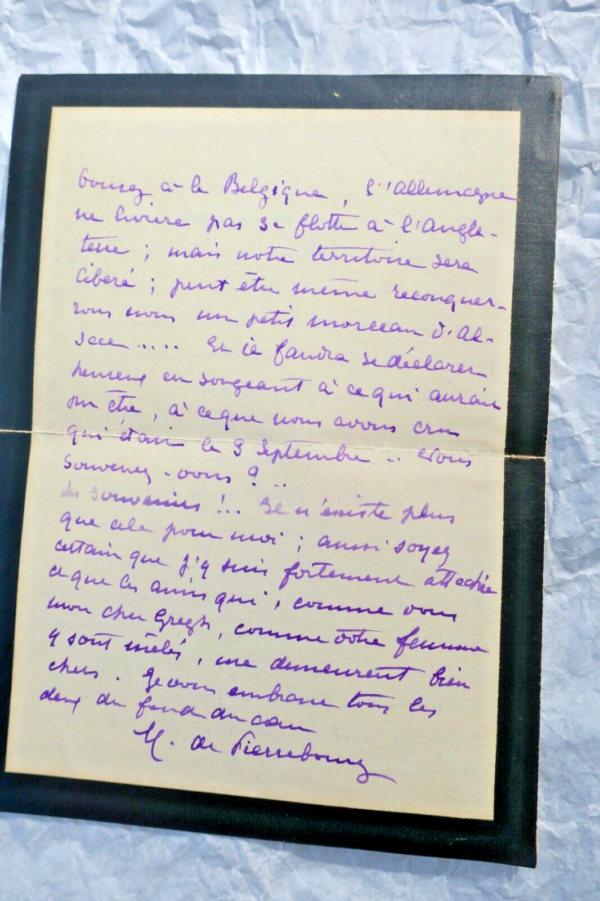 bourg à la Belgique, l'Allemagne
ne livrera pas sa flotte à l'Angle-
terre ; mais notre territoire sera
libéré ; peut être même reconquer-
rons nous un petit morceau d'Al-
sace .... Et il faudra se déclarer
heureux en songeant à ce qui aurait
pu être, à ce que nous avons cru
qui était le 3 Septembre .. Vous
souvenez-vous ? ..
Les souvenirs !.. Il n'existe plus
que cela pour moi ; aussi soyez
certain que j'y suis fortement attachée
et que les amis qui, comme vous
mon cher Gregh, comme votre femme
y sont mêlés, me demeurent bien
chers. Je vous embrasse tous les
deux du fond du cœur
M. de Pierrebourg